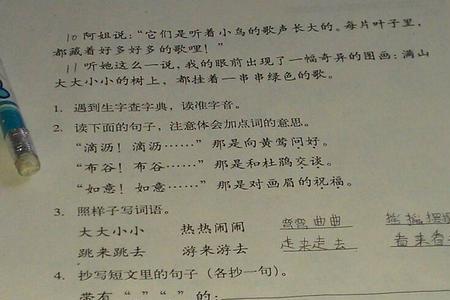 10 阿姐说:“它们是听着小鸟的歌声长大的。每片叶子里,
都藏着好多好多的歌哩!”
11 听她这么一说,我的眼前出现了一幅奇异的图画:满山
大大小小的树上,都挂着一串串绿色的歌。
1. 遇到生字查字典,读准字音。
2. 读下面的句子,注意体会加点词的意思。
“滴沥!滴沥……”那是向黄莺问好。
“布谷!布谷……”那是和杜鹃交谈。
“如意!如意……”那是对画眉的祝福。
3. 照样子写词语。
大大小小 热热闹闹 弯弯曲曲 摇摇摆摆
跳来跳去 游来游去 走来走去 看来看
4. 抄写短文里的句子(各抄一句)。
带有“ ”“ ”的: